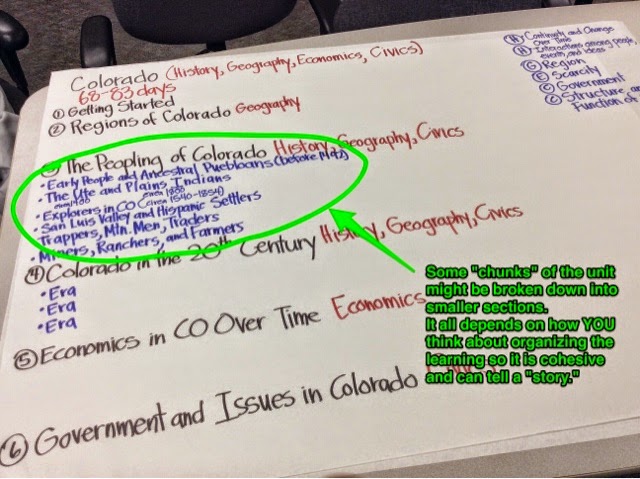 Colorado (History, Geography, Economics, Civics)
68-83 days
① Getting Started
② Regions of Colorado Geography
The Peopling of Colorado History, Geography, Civics
• Early People and Ancestral Puebloans (before
• The Ute and Plains Indians
• Explorers in CO (circa 1540-1854)
• San Luis Valley and Hispanic Settlers
• Trappers, Mtn. Men, Traders
• Miners, Ranchers, and Farmers
④ Colorado in the 20th Century History, Geography, Civics
• Era
• Era
• Era
⑤ Economics in CO Over Time Economics
⑥ Government and Issues in Colorado
Ⓗ Continuity and Change
Over Time
Ⓗ Interactions among people,
events, and ideas
Ⓖ Region
Ⓔ Scarcity
Ⓒ Government
Ⓒ Structure and
Function of
Some "chunks" of the unit
might be broken down into
smaller sections.
It all depends on how YOU
think about organizing the
learning so it is cohesive
and can tell a "story."